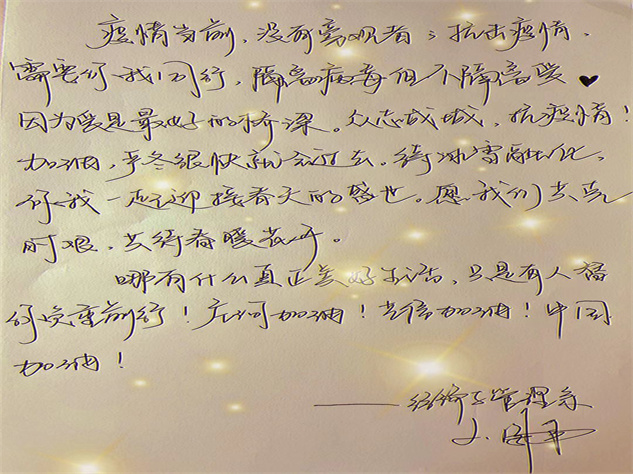 疫情当前，没有旁观者；抗击疫情，
需要你我同行，隔离病毒但不隔离爱♥
因为爱是最好的桥梁。众志成城，抗疫情！
加油，严冬很快就会过去。待冰雪融化，
你我一起迎接春天的盛世。愿我们共克
时艰，共待春暖花开。
哪有什么真正美好生活，只是有人替
你负重前行！加油！加油！中国
加油！
——经济与管理系